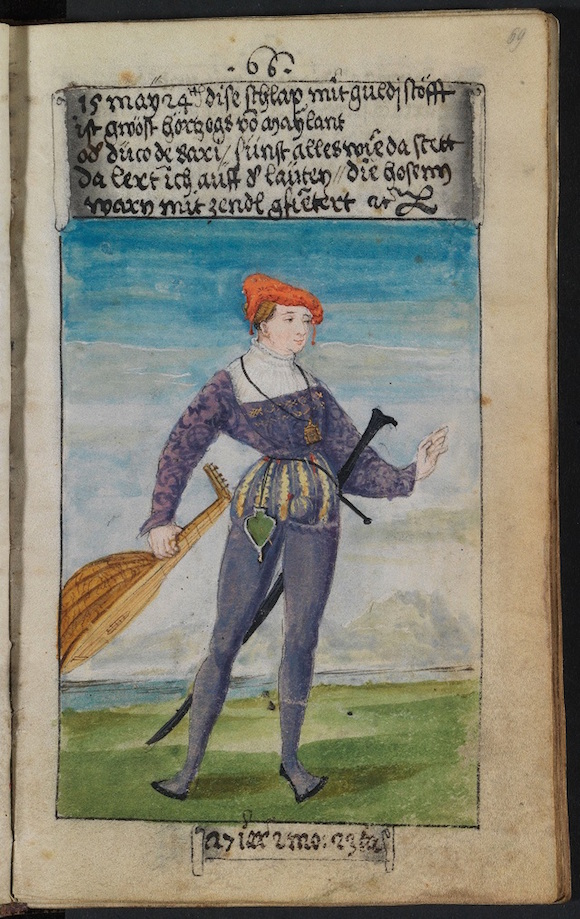 69
66
15 may 24 dise schlap mit guldj stöfft
ist gwöst hörzogs vō maylant
od düco de barj / sunst alles wie da stett
da lert ich auff d lauten // die hosenn
warn mit zendl gfietert
27 iar 2 mo: 23 tag